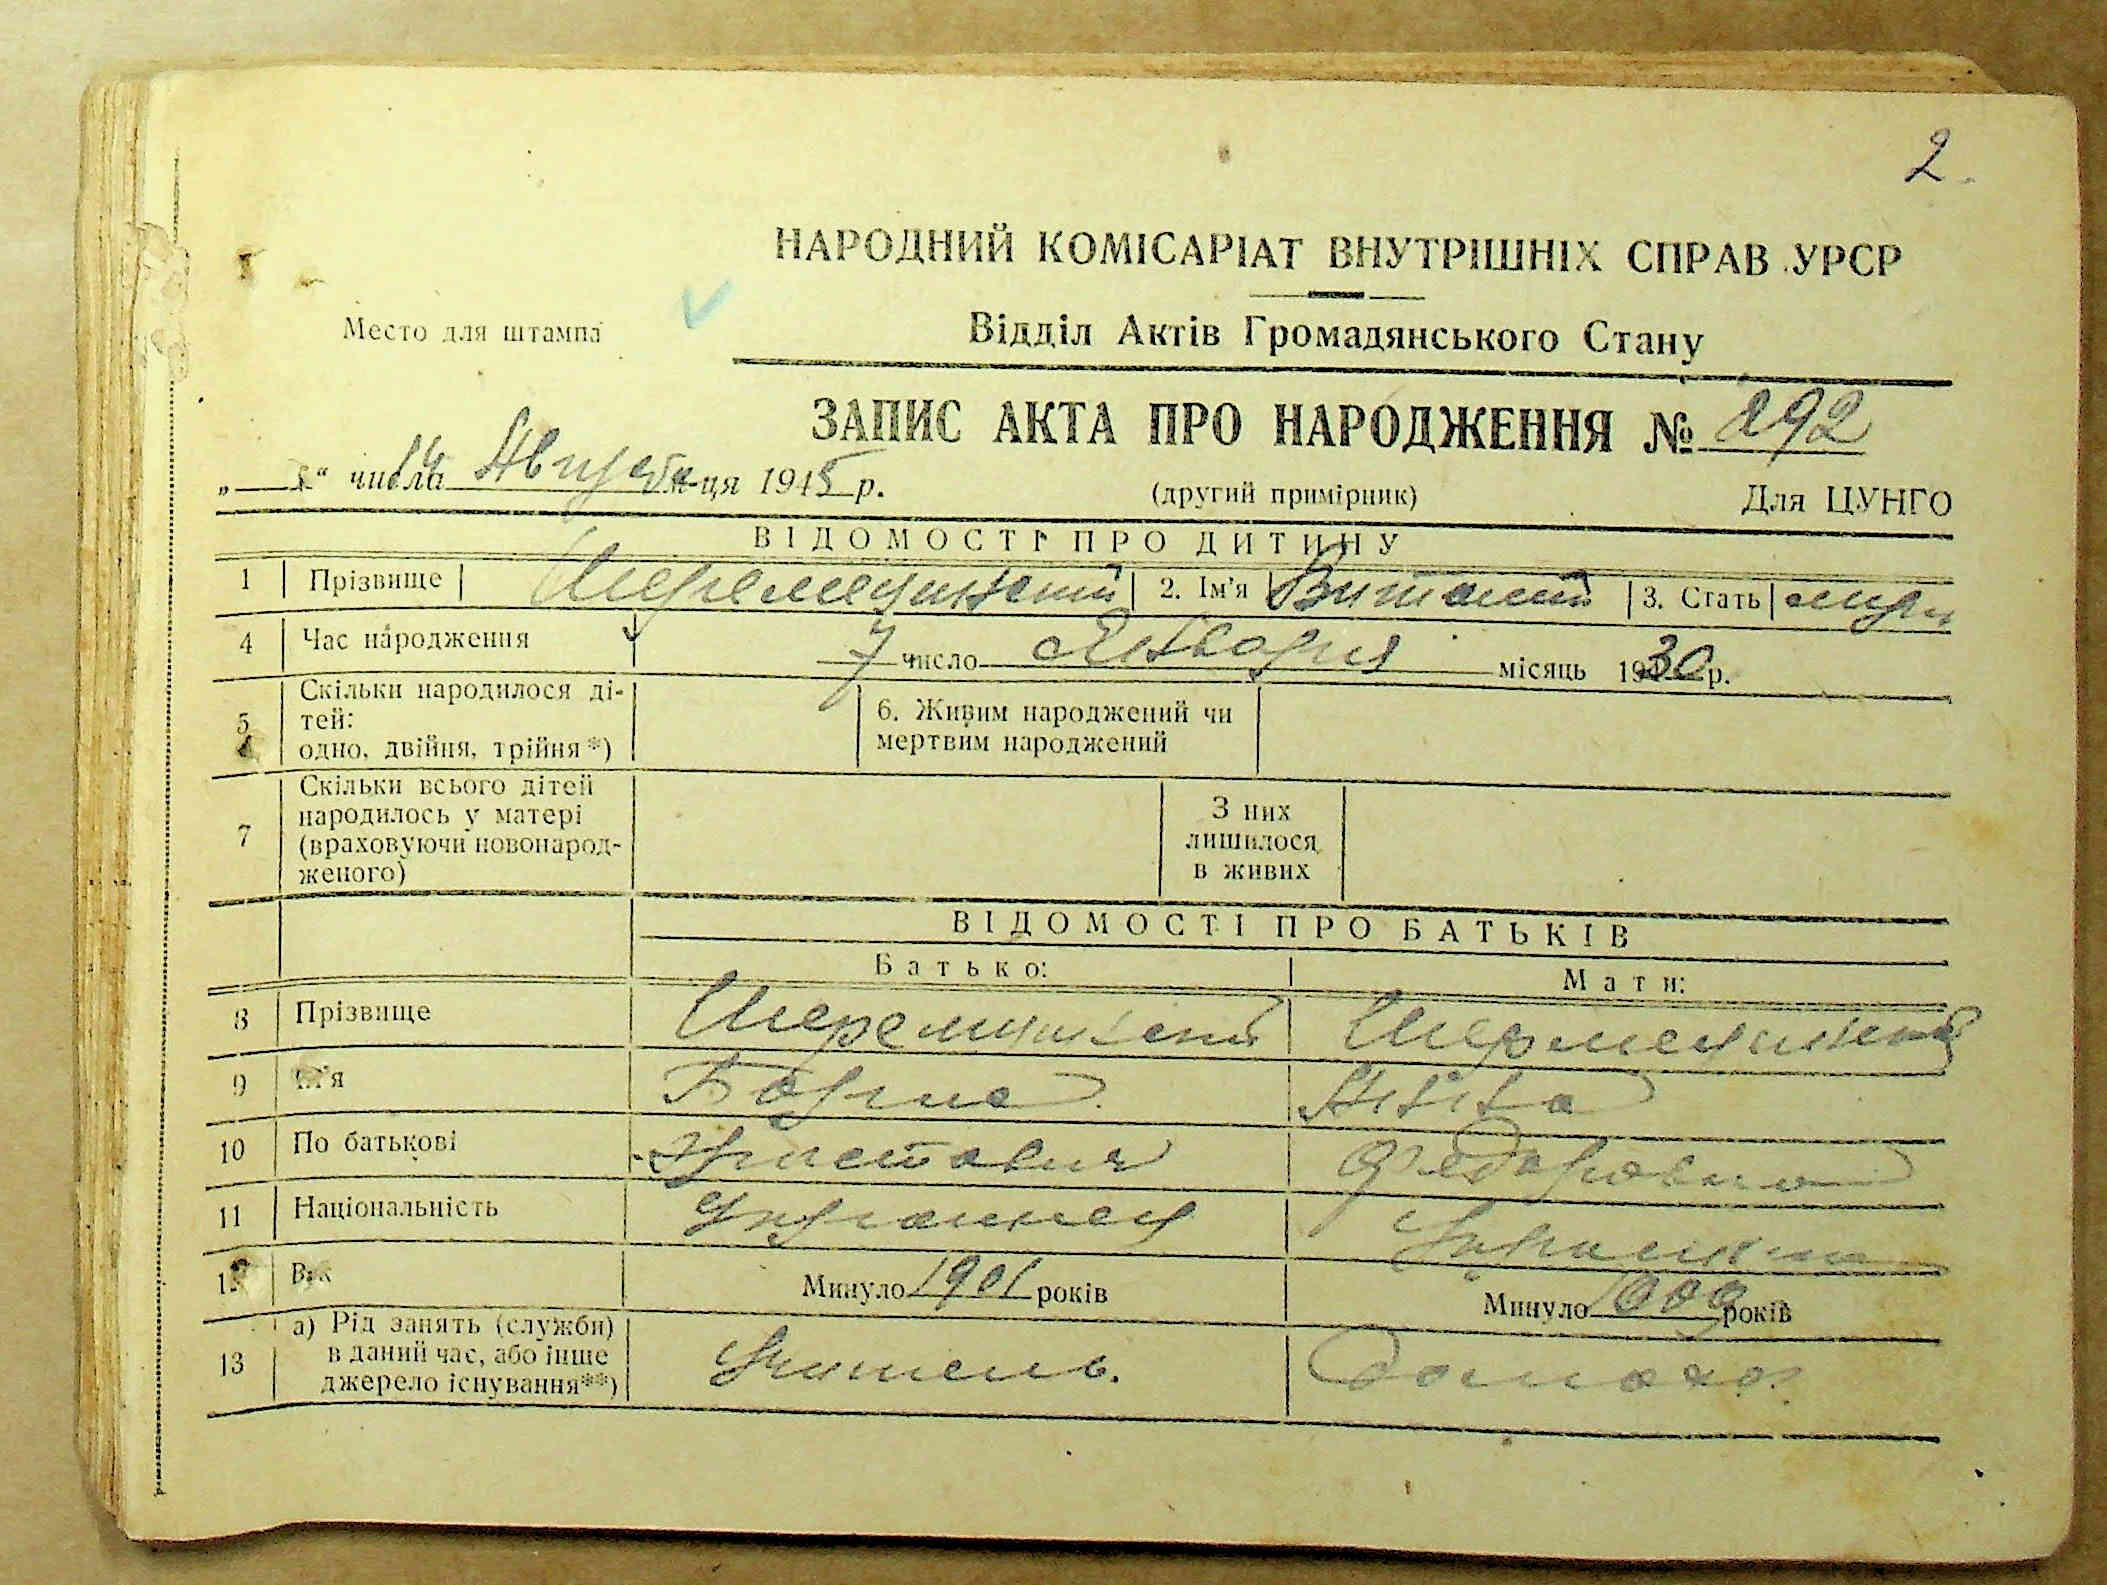 2.
НАРОДНИЙ КОМІСАРІАТ ВНУТРІШНІХ СПРАВ УРСР
Место для штампа
Відділ Актів Громадянського Стану
ЗАПИС АКТА ПРО НАРОДЖЕННЯ № 292
„ “ числа 14 Августа м-ця 1945 р.
(другий примірник) Для ЦУНГО
ВІДОМОСТІ ПРО ДИТИНУ
1 Прізвище 2. Ім'я Виталий 3. Стать муж
4 Час народження 7 число Января місяць 1930 р.
5 Скільки народилося ді-
тей:
одно, двійня, трійня*)
6. Живим народжений чи
мертвим народжений
7 Скільки всього дітей
народилось у матері
(враховуючи новонарод-
женого)
З них
лишилося
в живих
ВІДОМОСТІ ПРО БАТЬКІВ
Батько: Мати:
8 Прізвище
9 Ім'я Борис Анна
10 По батькові Федоровна
11 Національність Украинец Украинка
12 Вік Минуло 1901 років Минуло років
13 а) Рід занять (служби)
в даний час, або інше
джерело існування**)
Учитель. домохоз.